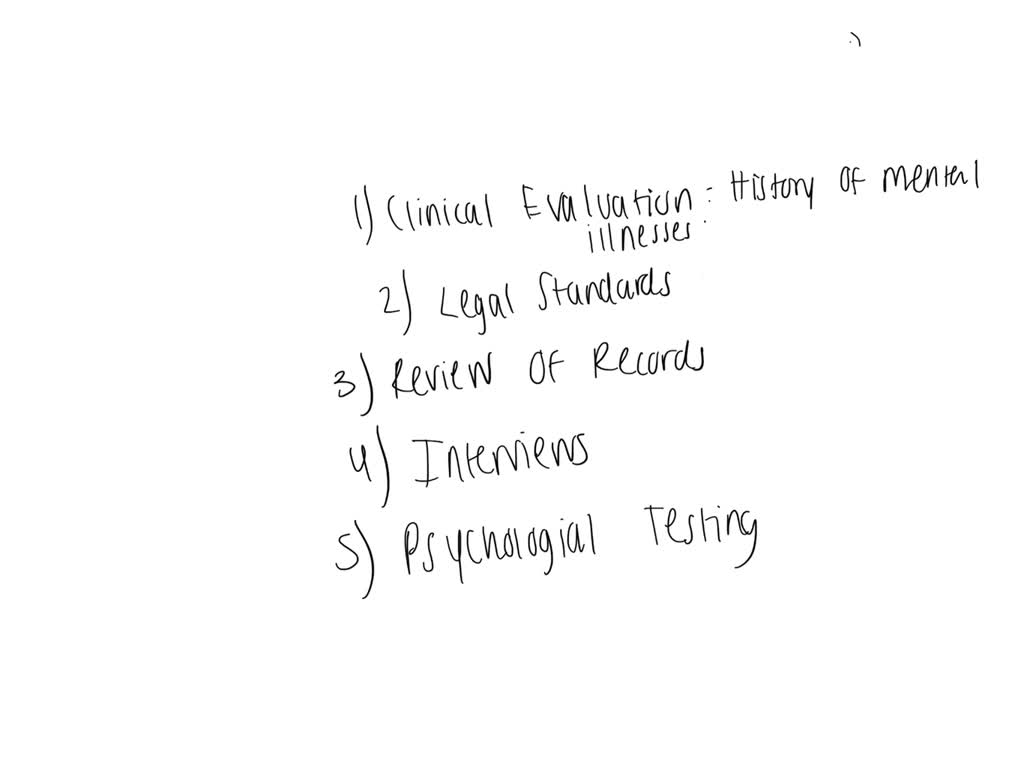 1) Clinical Evaluation: History of mental
illnesses
2) Legal Standards
3) Review of Records
4) Interviews
5) Psychologial Testing